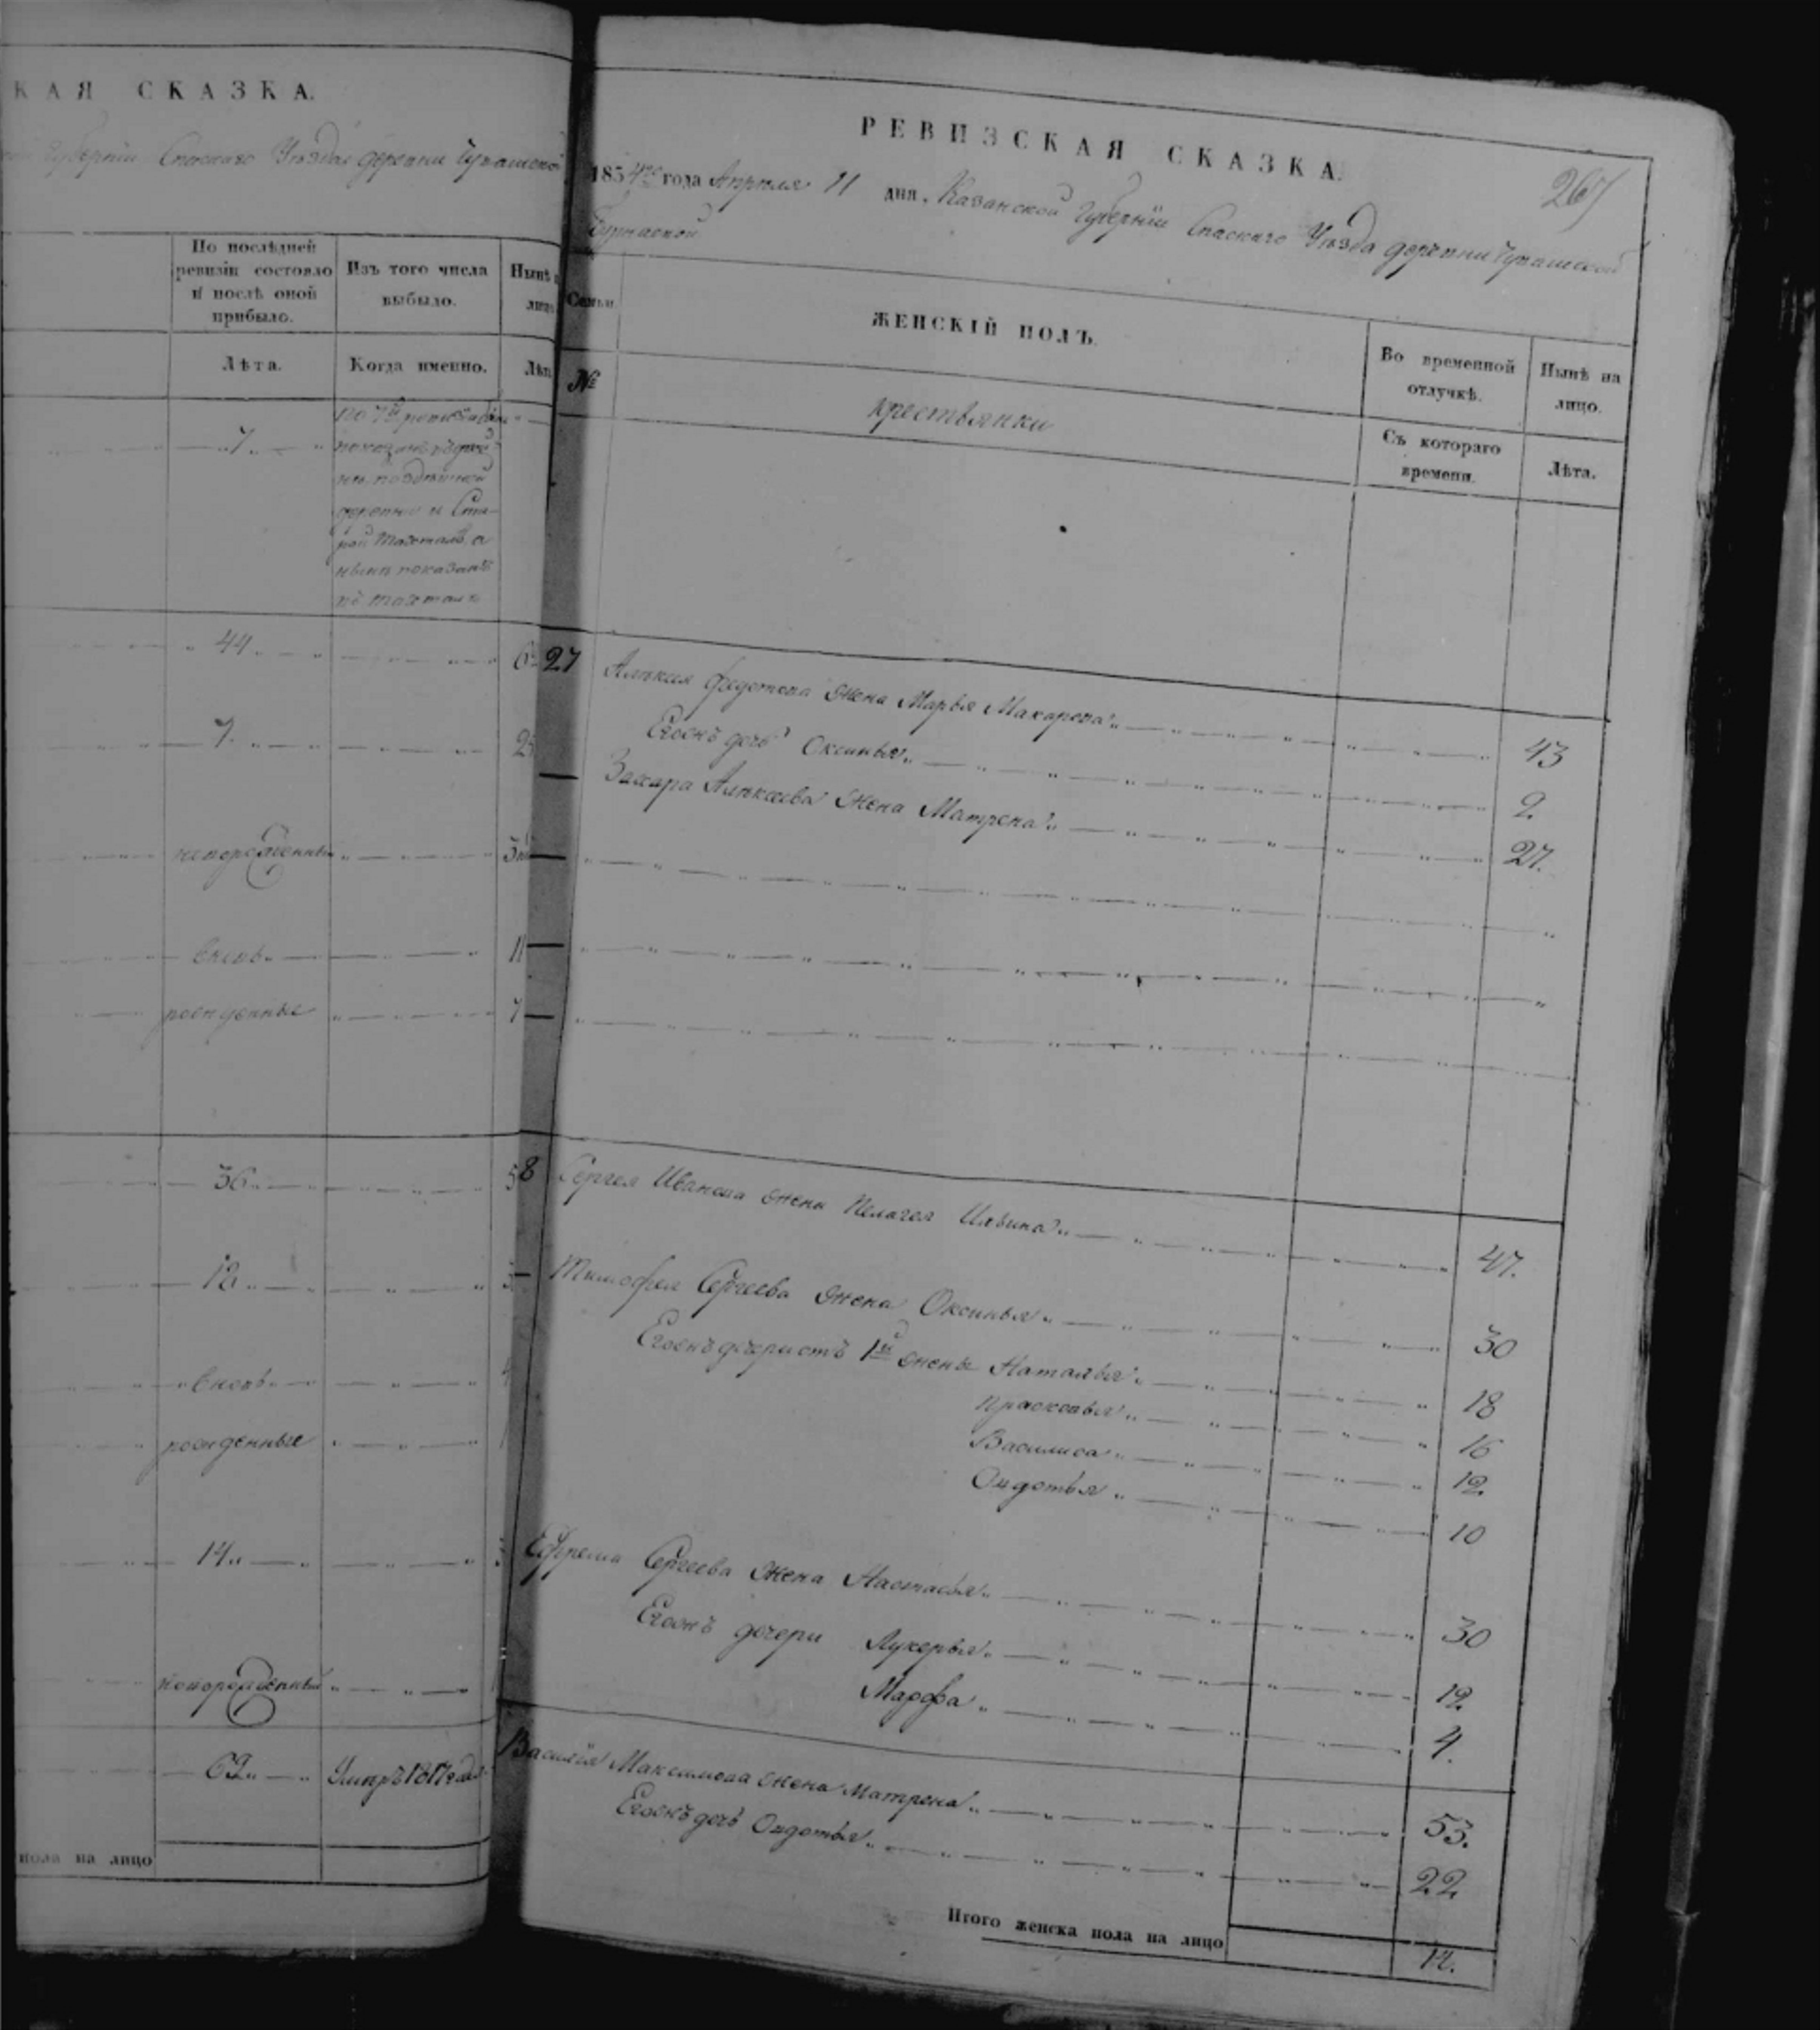 КАЯ СКАЗКА.
Губерніи Спаскаго Уѣзда деревни Чувашской
По послѣдней ревизіи состояло и послѣ оной прибыло.
Изъ того числа выбыло.
Нынѣ
лицо
Лѣта.
Когда именно.
Лѣт
7
по 7й
деревни и Ста-
рой
а
нынѣ показанъ
въ
44
7
2
новорожденный
вновь
11
рожденные
7
36
5
12
вновь
рожденные
14
новорожденный
62
Умеръ 181 года
пола на лицо
РЕВИЗСКАЯ СКАЗКА.
267
1854го года Апреля 11 дня. Казанской Губерніи Спаскаго Уѣзда деревни Чувашской
Семьи
ЖЕНСКІЙ ПОЛЪ.
Во временной отлучкѣ.
Нынѣ на лицо.
№
крестьянки
Съ котораго времени.
Лѣта.
27 Алѣксея Федотова жена Марья Макарова 43
Егоенъ дочь Оксинья 2
Захара Алѣксеева жена Матрена 27.
8 Сергея Иванова жена Пелагея Ильина 47.
Тимофея Сергеева жена Оксинья 30
Егоенъ дочери отъ 1й жены Наталья 18
Прасковья 16
Василиса 12.
Овдотья 10
Ефрема Сергеева жена Настасья 30
Егоенъ дочери Лукерья 12.
Марфа 4.
Василія Максимова жена Матрена 53.
Егоенъ дочь Овдотья 22
Итого женска пола на лицо 14.